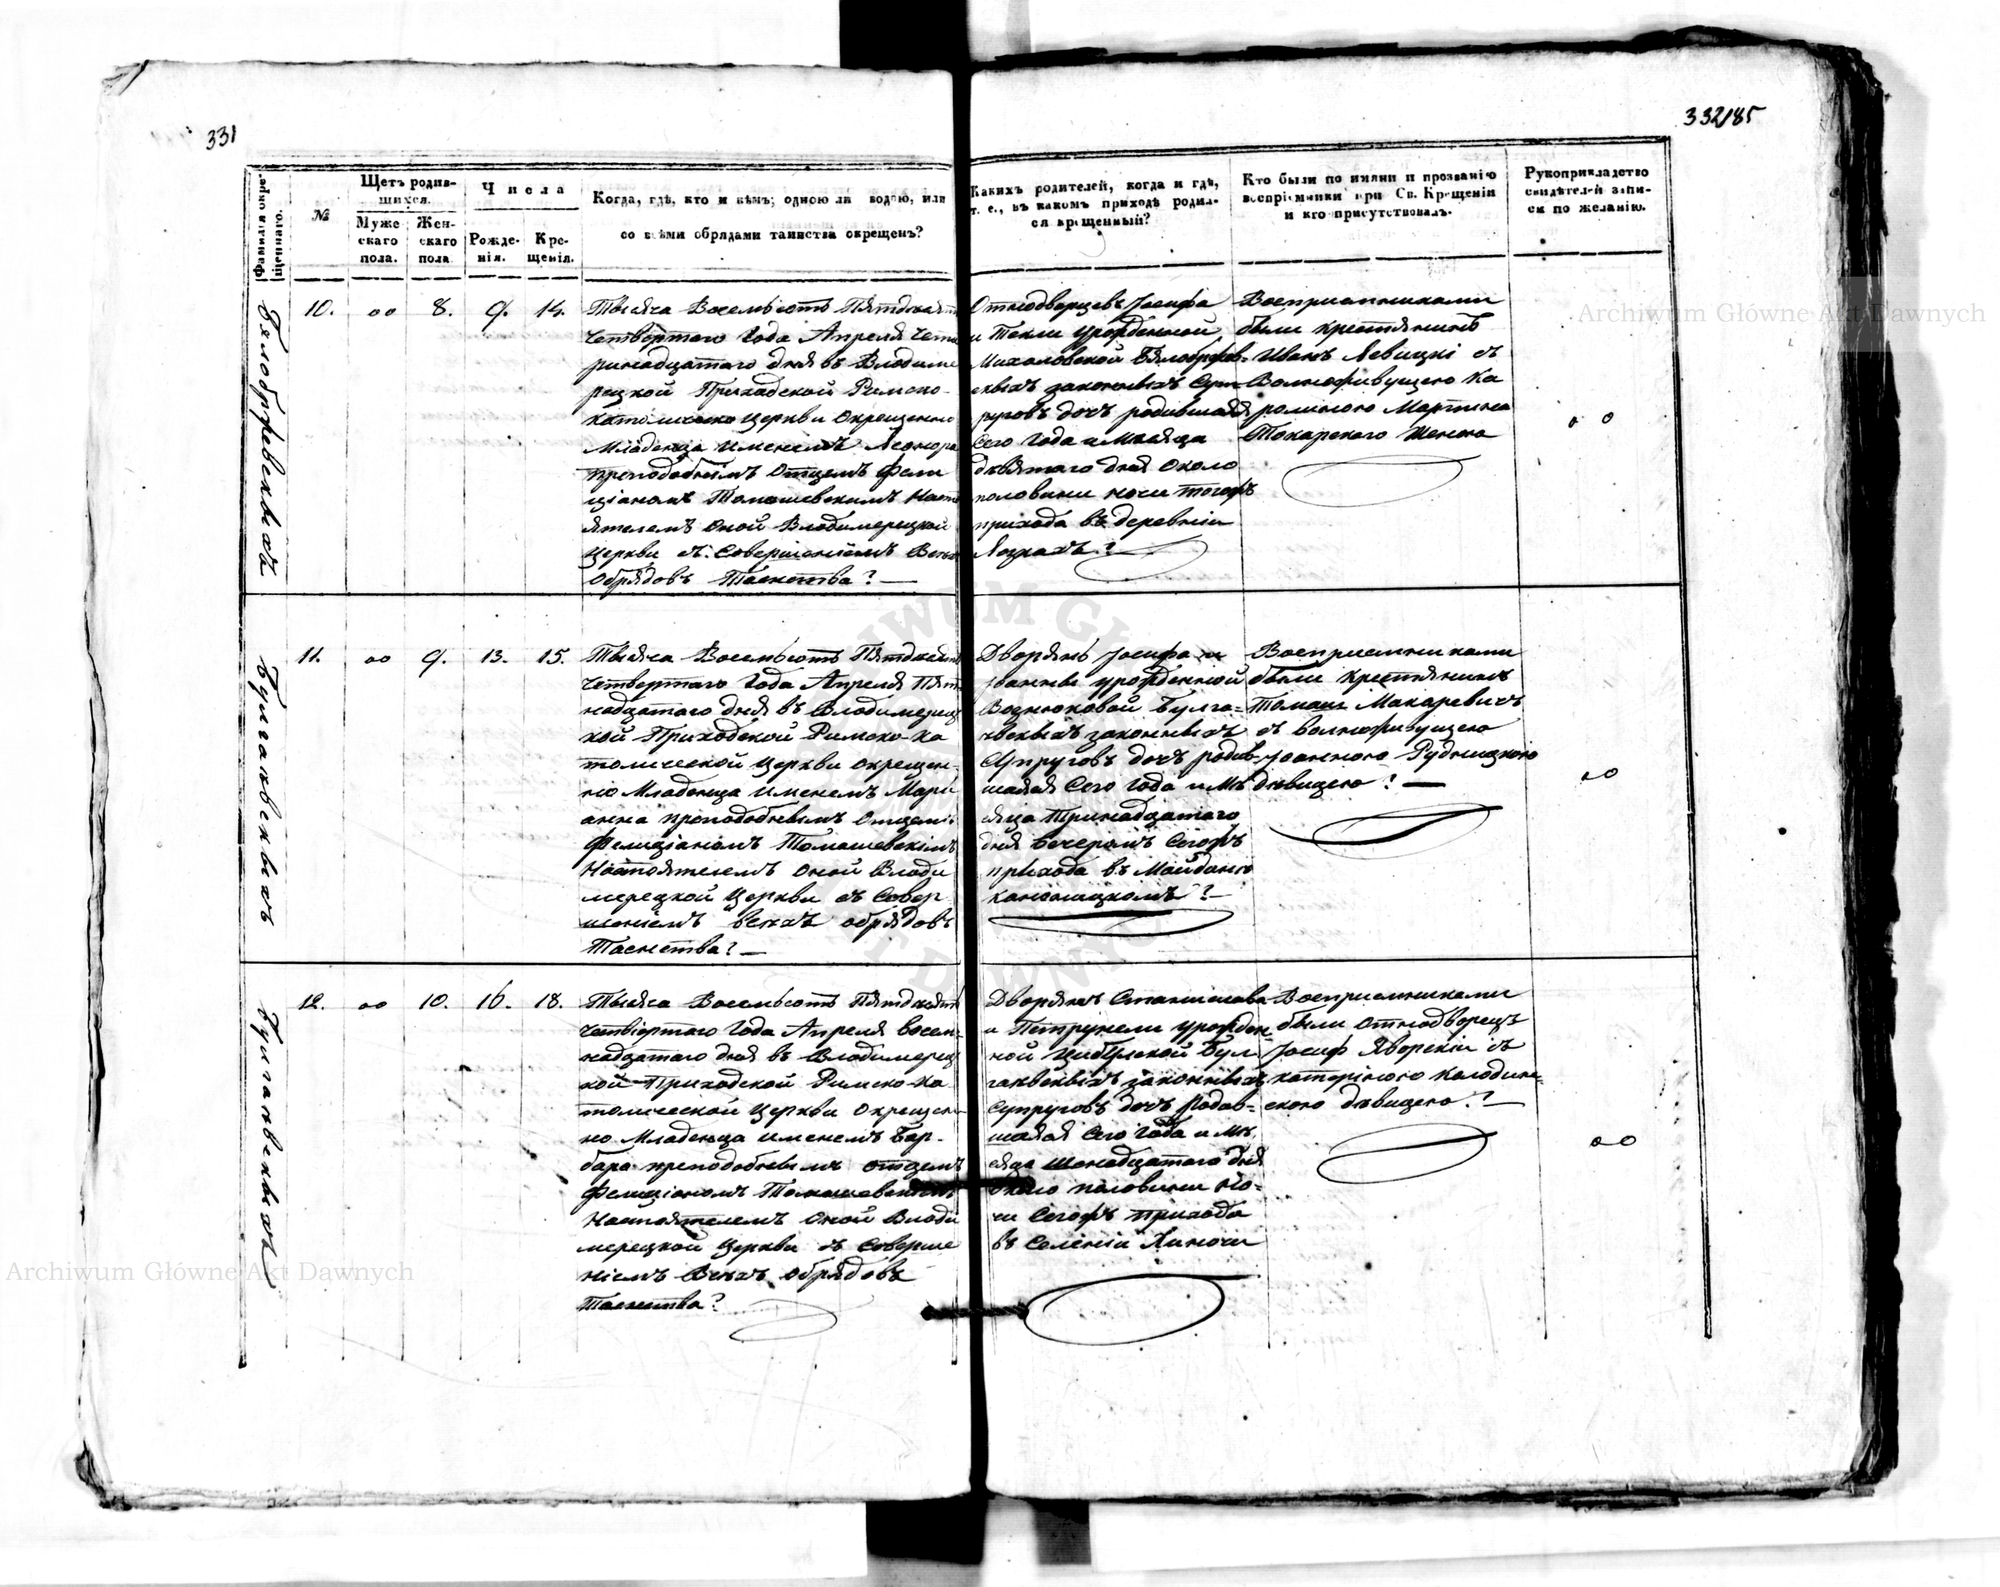 331
332/85
Фамилия окрещеннаго.
№
Щетъ родившихся.
Мужескаго пола.
Женскаго пола
Числа
Рожденія.
Крещенія.
Когда, гдѣ, кто и кѣмъ; одною ли водою, или
со всѣми обрядами таинства окрещенъ?
Какихъ родителей, когда и гдѣ,
т. е., въ какомъ приходѣ родил-
ся крещенный?
Кто были по имяни и прозванію
воспріемники при Св. Крещеніи
и кто присутствовалъ.
Рукоприкладство
свидѣтелей запи-
си по желанію.
10. 00 8. 9. 14.
Тысяча Восемьсотъ Пятдесятъ
Четвертого Года Апреля Четы
ринадцатого дня въ Владиме
рецкой Приходской Римско-
католической Церкви Окрещенно
Младенца Именемъ Леонора
преподобнымъ Отцемъ Фели
ціаномъ Томашевскимъ Насто
ятелемъ Оной Владимерецкой
Церкви съ Совершеніемъ Всехъ
Обрядовъ Таинства? —
Однодворцевъ Іосифа
и Текли урожденной
Михаловской Бялобржев=
скихъ законныхъ Суп-
руговъ дочь родившаяся
Сего Года и Месяца
девятого дня Около
половины ночи тогожъ
прихода въ деревніи
Воспріемниками
были Крестянинъ
Иванъ Левицкі съ
Вольноживущею Ка
ролиною Мартина
Токарского Женою
00
11. 00 9. 13. 15.
Булгаковскихъ
Тысяча Восемьсотъ Пятдесятъ
Четвертого Года Апреля Пят
надцатого дня въ Владимерец
кой Приходской Римско-Ка
толической Церкви Окрещен-
но Младенца Именемъ Марі
анна преподобнымъ Отцемъ
Фелиціаномъ Томашевскімъ
Настоятелемъ Оной Влади
мерецкой Церкви съ Совер
шеніемъ Всехъ обрядовъ
Таинства? —
Дворянъ Іосифа и
Іоанны урожденной
Вознюковой Булга=
ковскихъ законныхъ
Супруговъ дочь родив-
шаяся Сего Года и Мѣ
сяца Тринадцатого
дня Вечеромъ Сегожъ
прихода въ Майдане
Воспріемниками
были Крестянинъ
Томашъ Макаревичъ
съ вольноживущею
Іоанною Рудницкою
девицею? —
00
12. 00 10. 16. 18.
Булгаковскихъ
Тысяча Восемьсотъ Пятдесятъ
Четвіортого Года Апреля Восем=
надцатого дня въ Владимерец
кой Приходской Римско-Ка
толической Церкви Окрещен-
но Младенца Именемъ Бар-
бара преподобнымъ отцемъ
Фелиціаномъ Томашевскімъ
Настоятелемъ Оной Влади
мерецкой Церкви съ Соверше
ніемъ Всехъ Обрядовъ
Таинства?
Дворянъ Станислава
и Петрунели урожден
ной Цибульской Бул
гаковскихъ законныхъ
Супруговъ дочь Родив=
шаяся Сего Года и Мѣ
сяца Шонадцатого дня
Около половини но-
чи Сегожъ прихода
въ Селеніи Хиночи
Воспріемниками
были Однодворецъ
Іосиф Яворскіи съ
Катеріною Колодин=
скою девицею? —
00
Archiwum Główne Akt Dawnych
Archiwum Główne Akt Dawnych